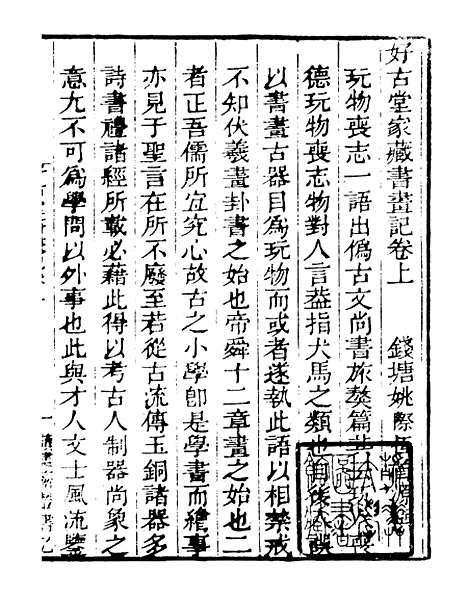 好古堂家藏書畫記卷上 錢塘姚際
玩物喪志一語出僞古文尚書旅獒篇
德玩物喪志物對人言葢指犬馬之類也
以書畫古器目為玩物而或者遂執此語以相禁戒
不知伏羲畫卦書之始也帝舜十二章畫之始也二
者正吾儒所宜究心故古之小學卽是學書而繪事
亦見于聖言在所不廢至若從古流傳玉銅諸器多
詩書禮諸經所載必藉此得以考古人制器尚象之
意尤不可為學問以外事也此與才人文士風流鑒
一